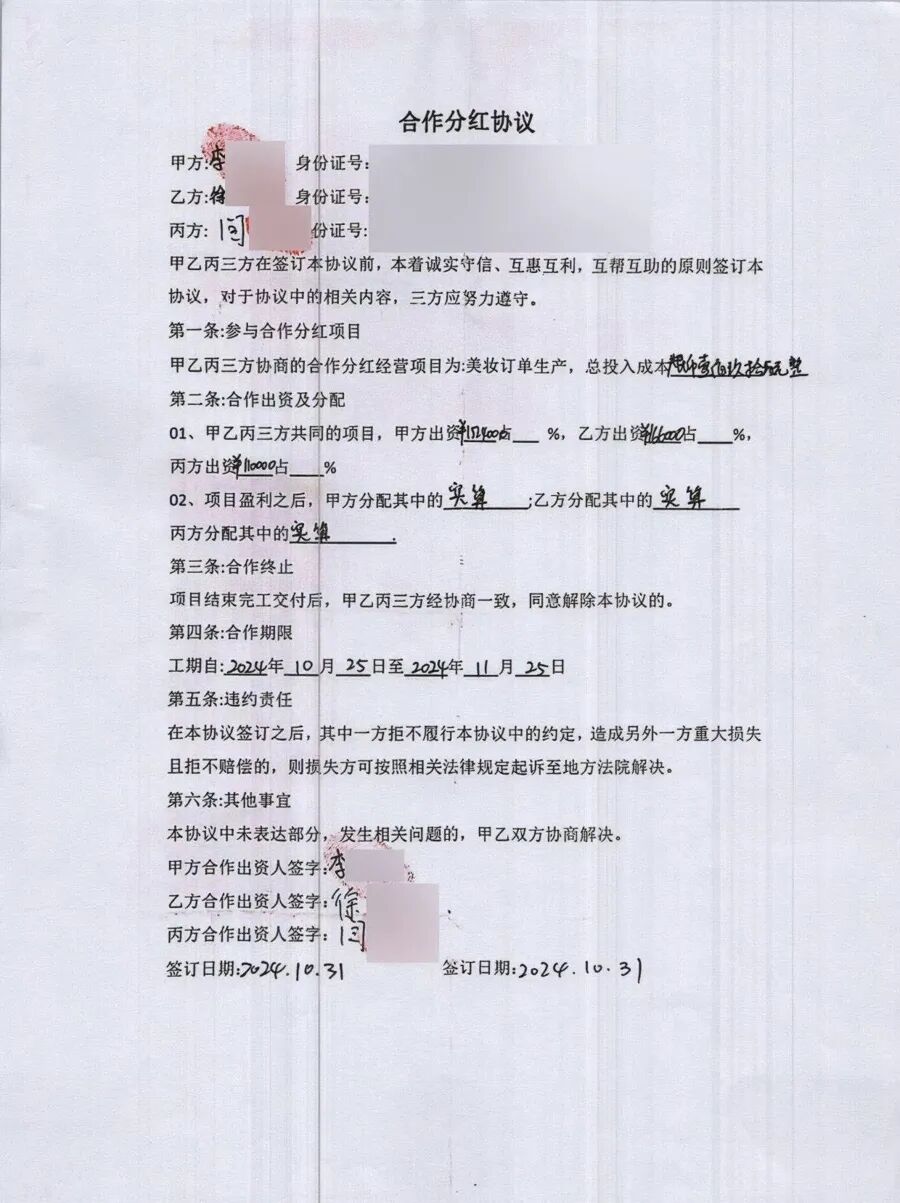 合作分红协议
甲方:李 身份证号:
乙方:徐 身份证号:
丙方: 闫 份证号:
甲乙丙三方在签订本协议前，本着诚实守信、互惠互利，互帮互助的原则签订本
协议，对于协议中的相关内容，三方应努力遵守。
第一条:参与合作分红项目
甲乙丙三方协商的合作分红经营项目为:美妆订单生产，总投入成本 仟壹佰玖拾 元整
第二条:合作出资及分配
01、甲乙丙三方共同的项目，甲方出资 占___ %，乙方出资¥166000占____%，
丙方出资¥110000占____%
02、项目盈利之后，甲方分配其中的 实算 ;乙方分配其中的 实算
丙方分配其中的实算 .
第三条:合作终止
项目结束完工交付后，甲乙丙三方经协商一致，同意解除本协议的。
第四条:合作期限
工期自:2024年 10 月 25 日至 2024年 11 月 25 日
第五条:违约责任
在本协议签订之后，其中一方拒不履行本协议中的约定，造成另外一方重大损失
且拒不赔偿的，则损失方可按照相关法律规定起诉至地方法院解决。
第六条:其他事宜
本协议中未表达部分，发生相关问题的，甲乙双方协商解决。
甲方合作出资人签字:李
乙方合作出资人签字:徐
丙方合作出资人签字: 闫
签订日期:2024.10.31 签订日期:2024.10.31